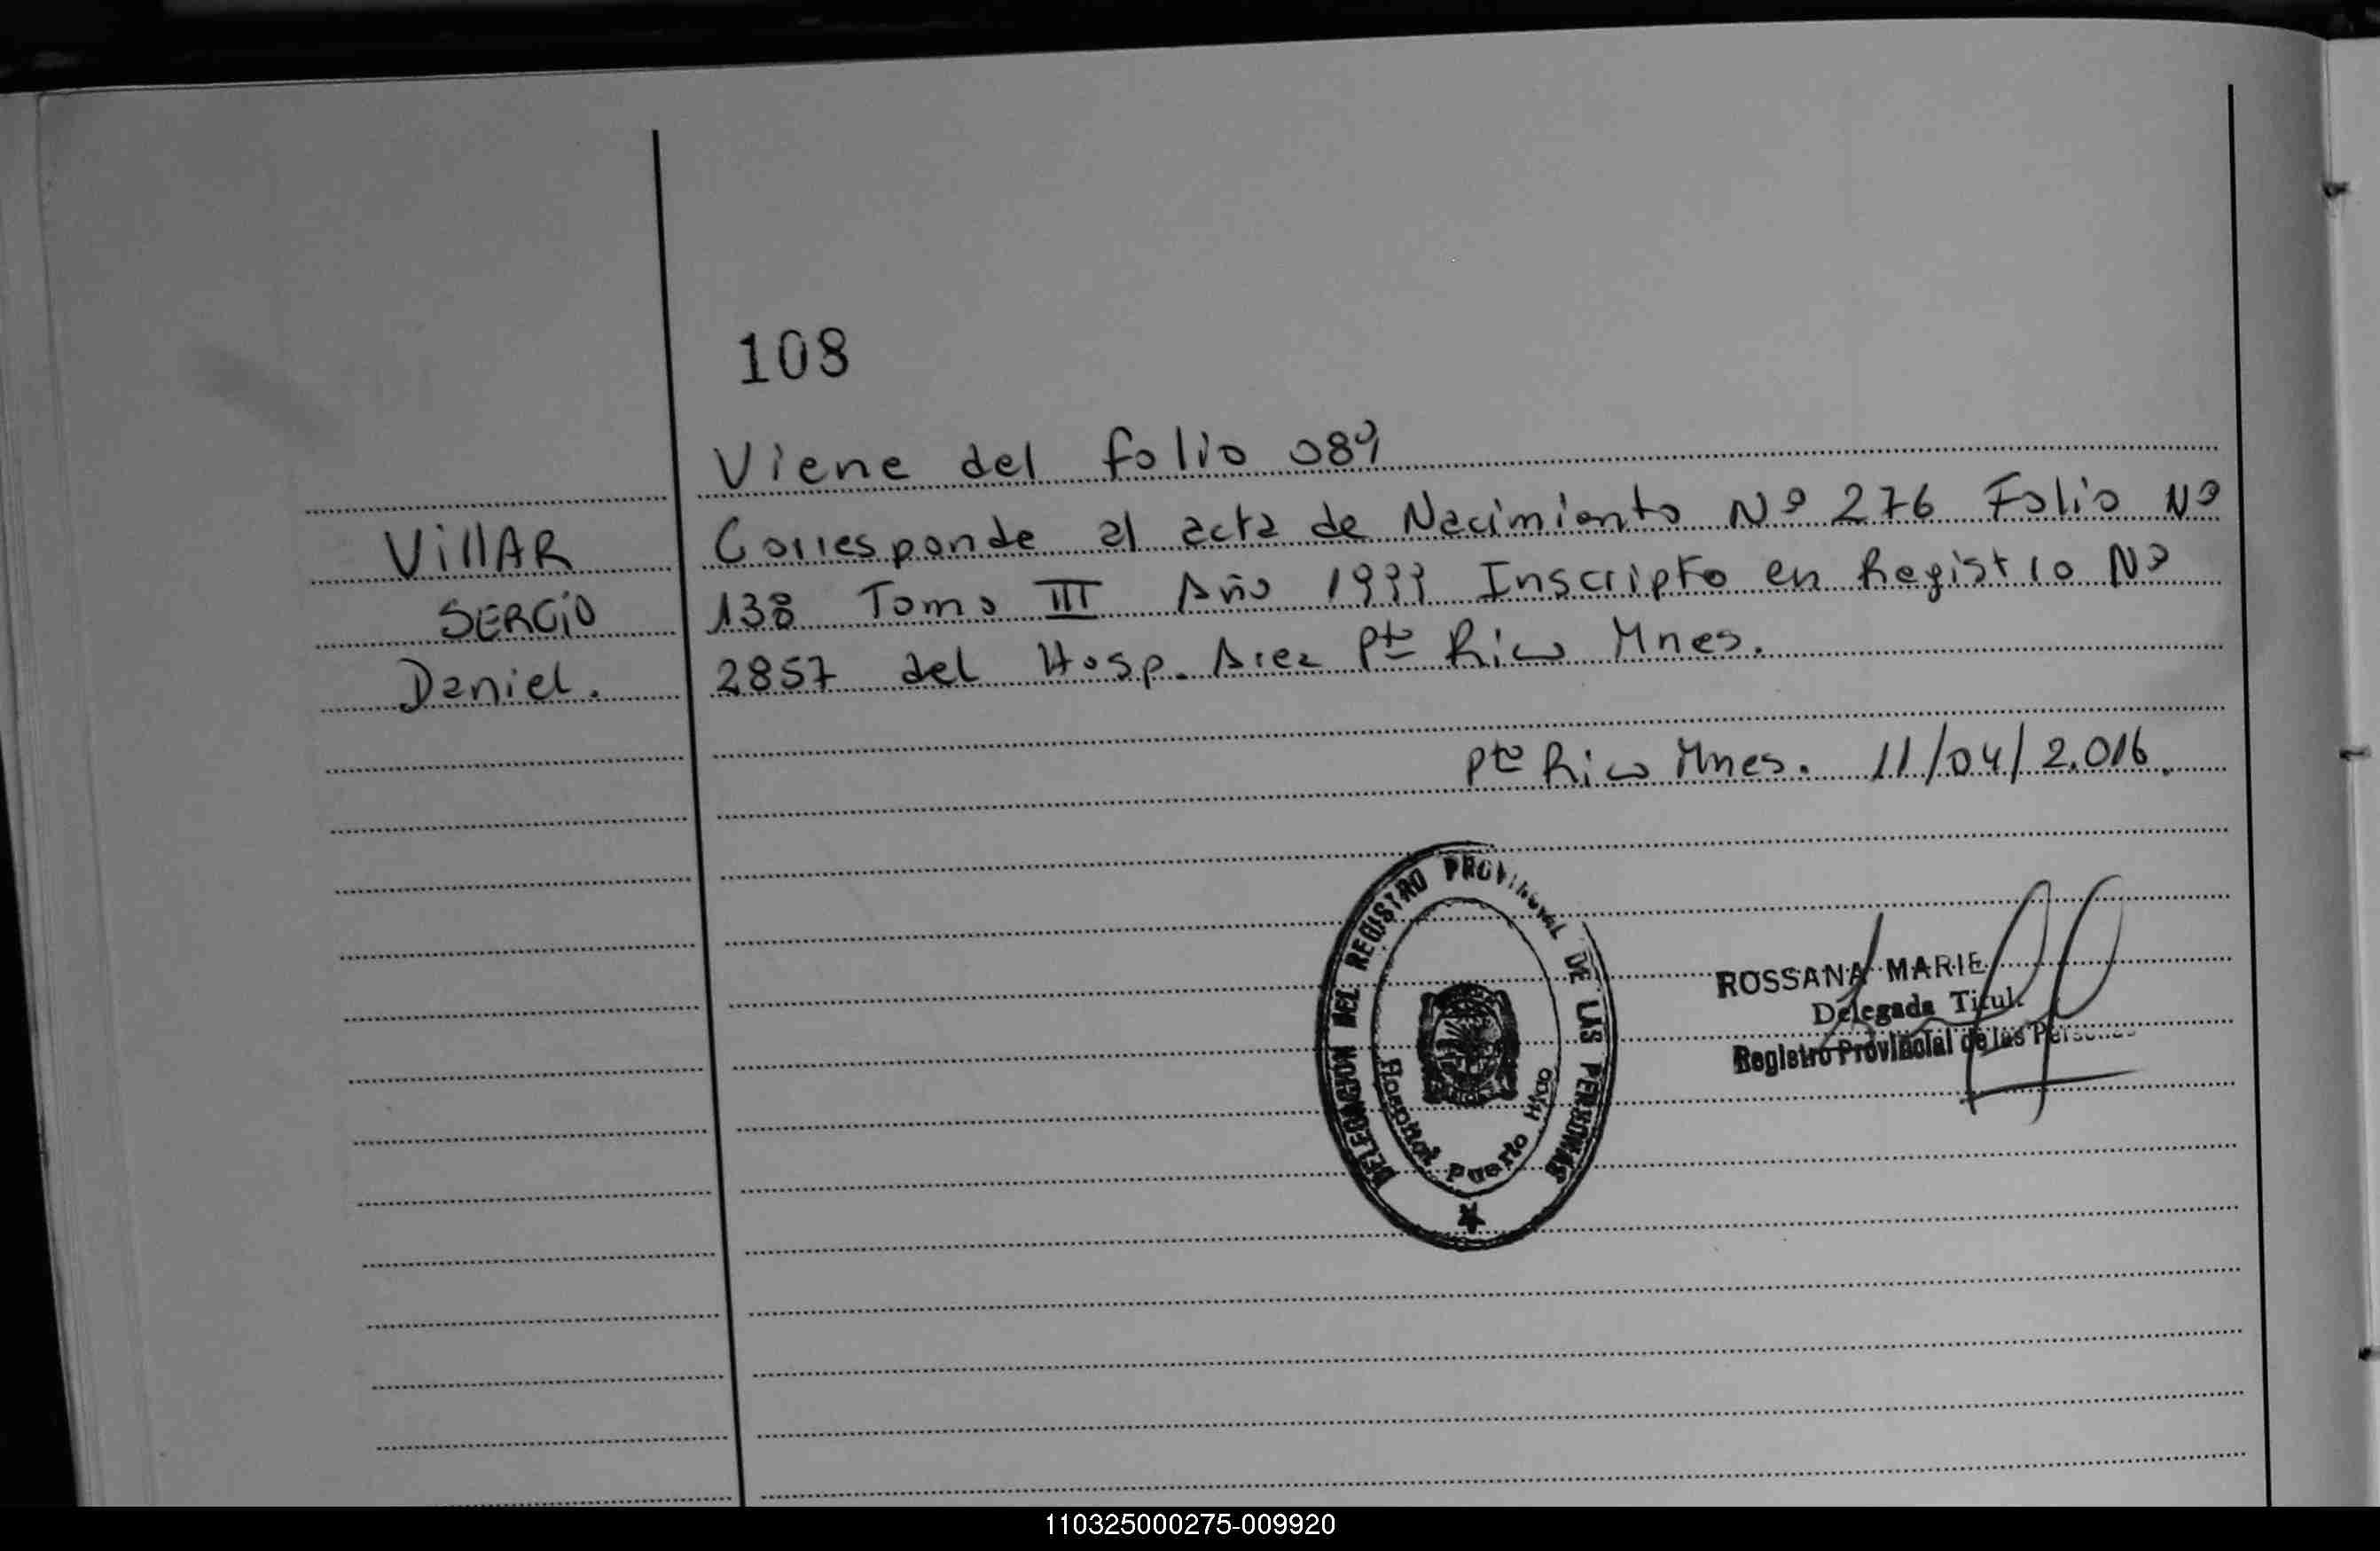 108
Viene del folio 089
VillAR Corresponde al acta de Nacimiento Nº 276 Folio Nº
SERGiO 138 Tomo III Año 1999 Inscripto en Registro Nº
Daniel. 2857 del Hosp. Area Pto Rico Mnes.
Pto Rico Mnes. 11/04/2.016.
DELEGACION DEL REGISTRO PROVINCIAL DE LAS PERSONAS
Hospital Puerto Rico
ROSSANA MARIE
Delegada Titul.
Registro Provincial de las Personas
110325000275-009920